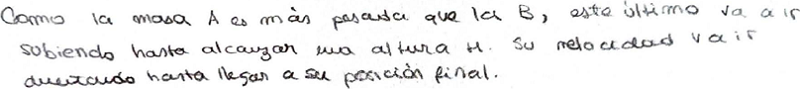 Como la masa A es más pesada que la B, este último va a ir
subiendo hasta alcanzar una altura H. Su velocidad va ir
aumentando hasta llegar a su posición final.